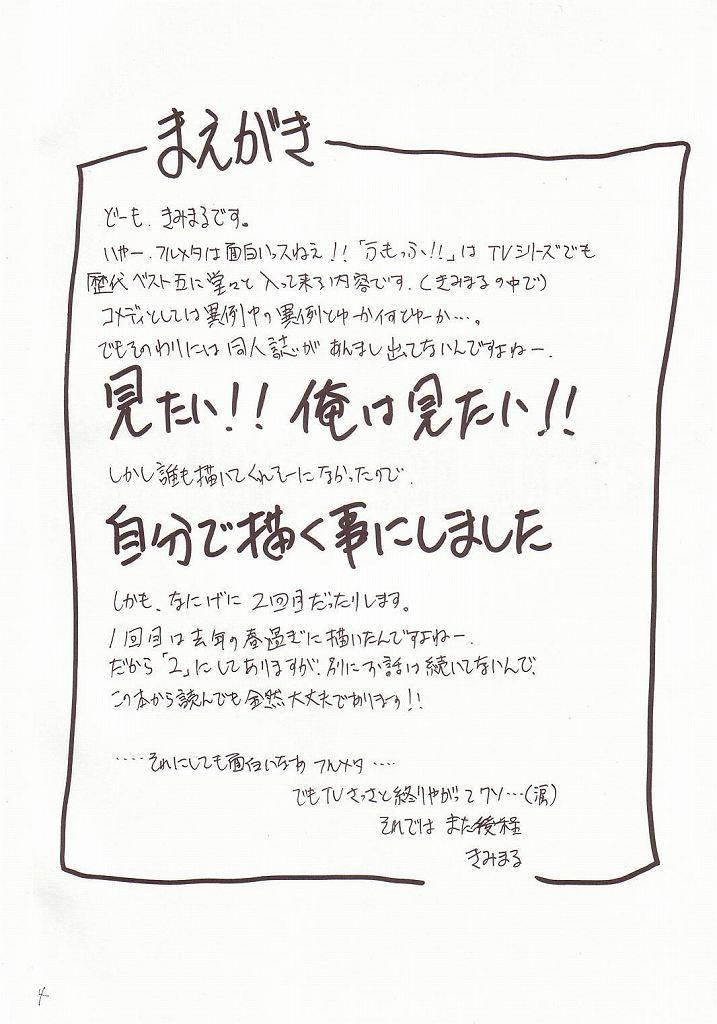 まえがき
どーも、きみまるです。
いやー、フルメタは面白いっスねえ!!「ふもっふ!!」は TVシリーズでも
歴代ベスト五に堂々と入って来る内容です。(きみまるの中で)
コメディとしては異例中の異例とゆーかイすとゆーか…。
でもそのわりには同人誌があんまし出てないんですよねー。
見たい!! 俺は見たい!!
しかし誰も描いてくれそーになかったので、
自分で描く事にしました
しかも、なにげに 2回目だったりします。
1回目は去年の春過ぎに描いたんですよねー。
だから「2」にしてありますが、別にお話は続いてないんで、
この本から読んでも全然大丈夫であります!!
‥‥それにしても面白いなあ フルメタ‥‥
でもTVさっさと終りやがってクソ…(涙)
それでは また後程
きみまる
4